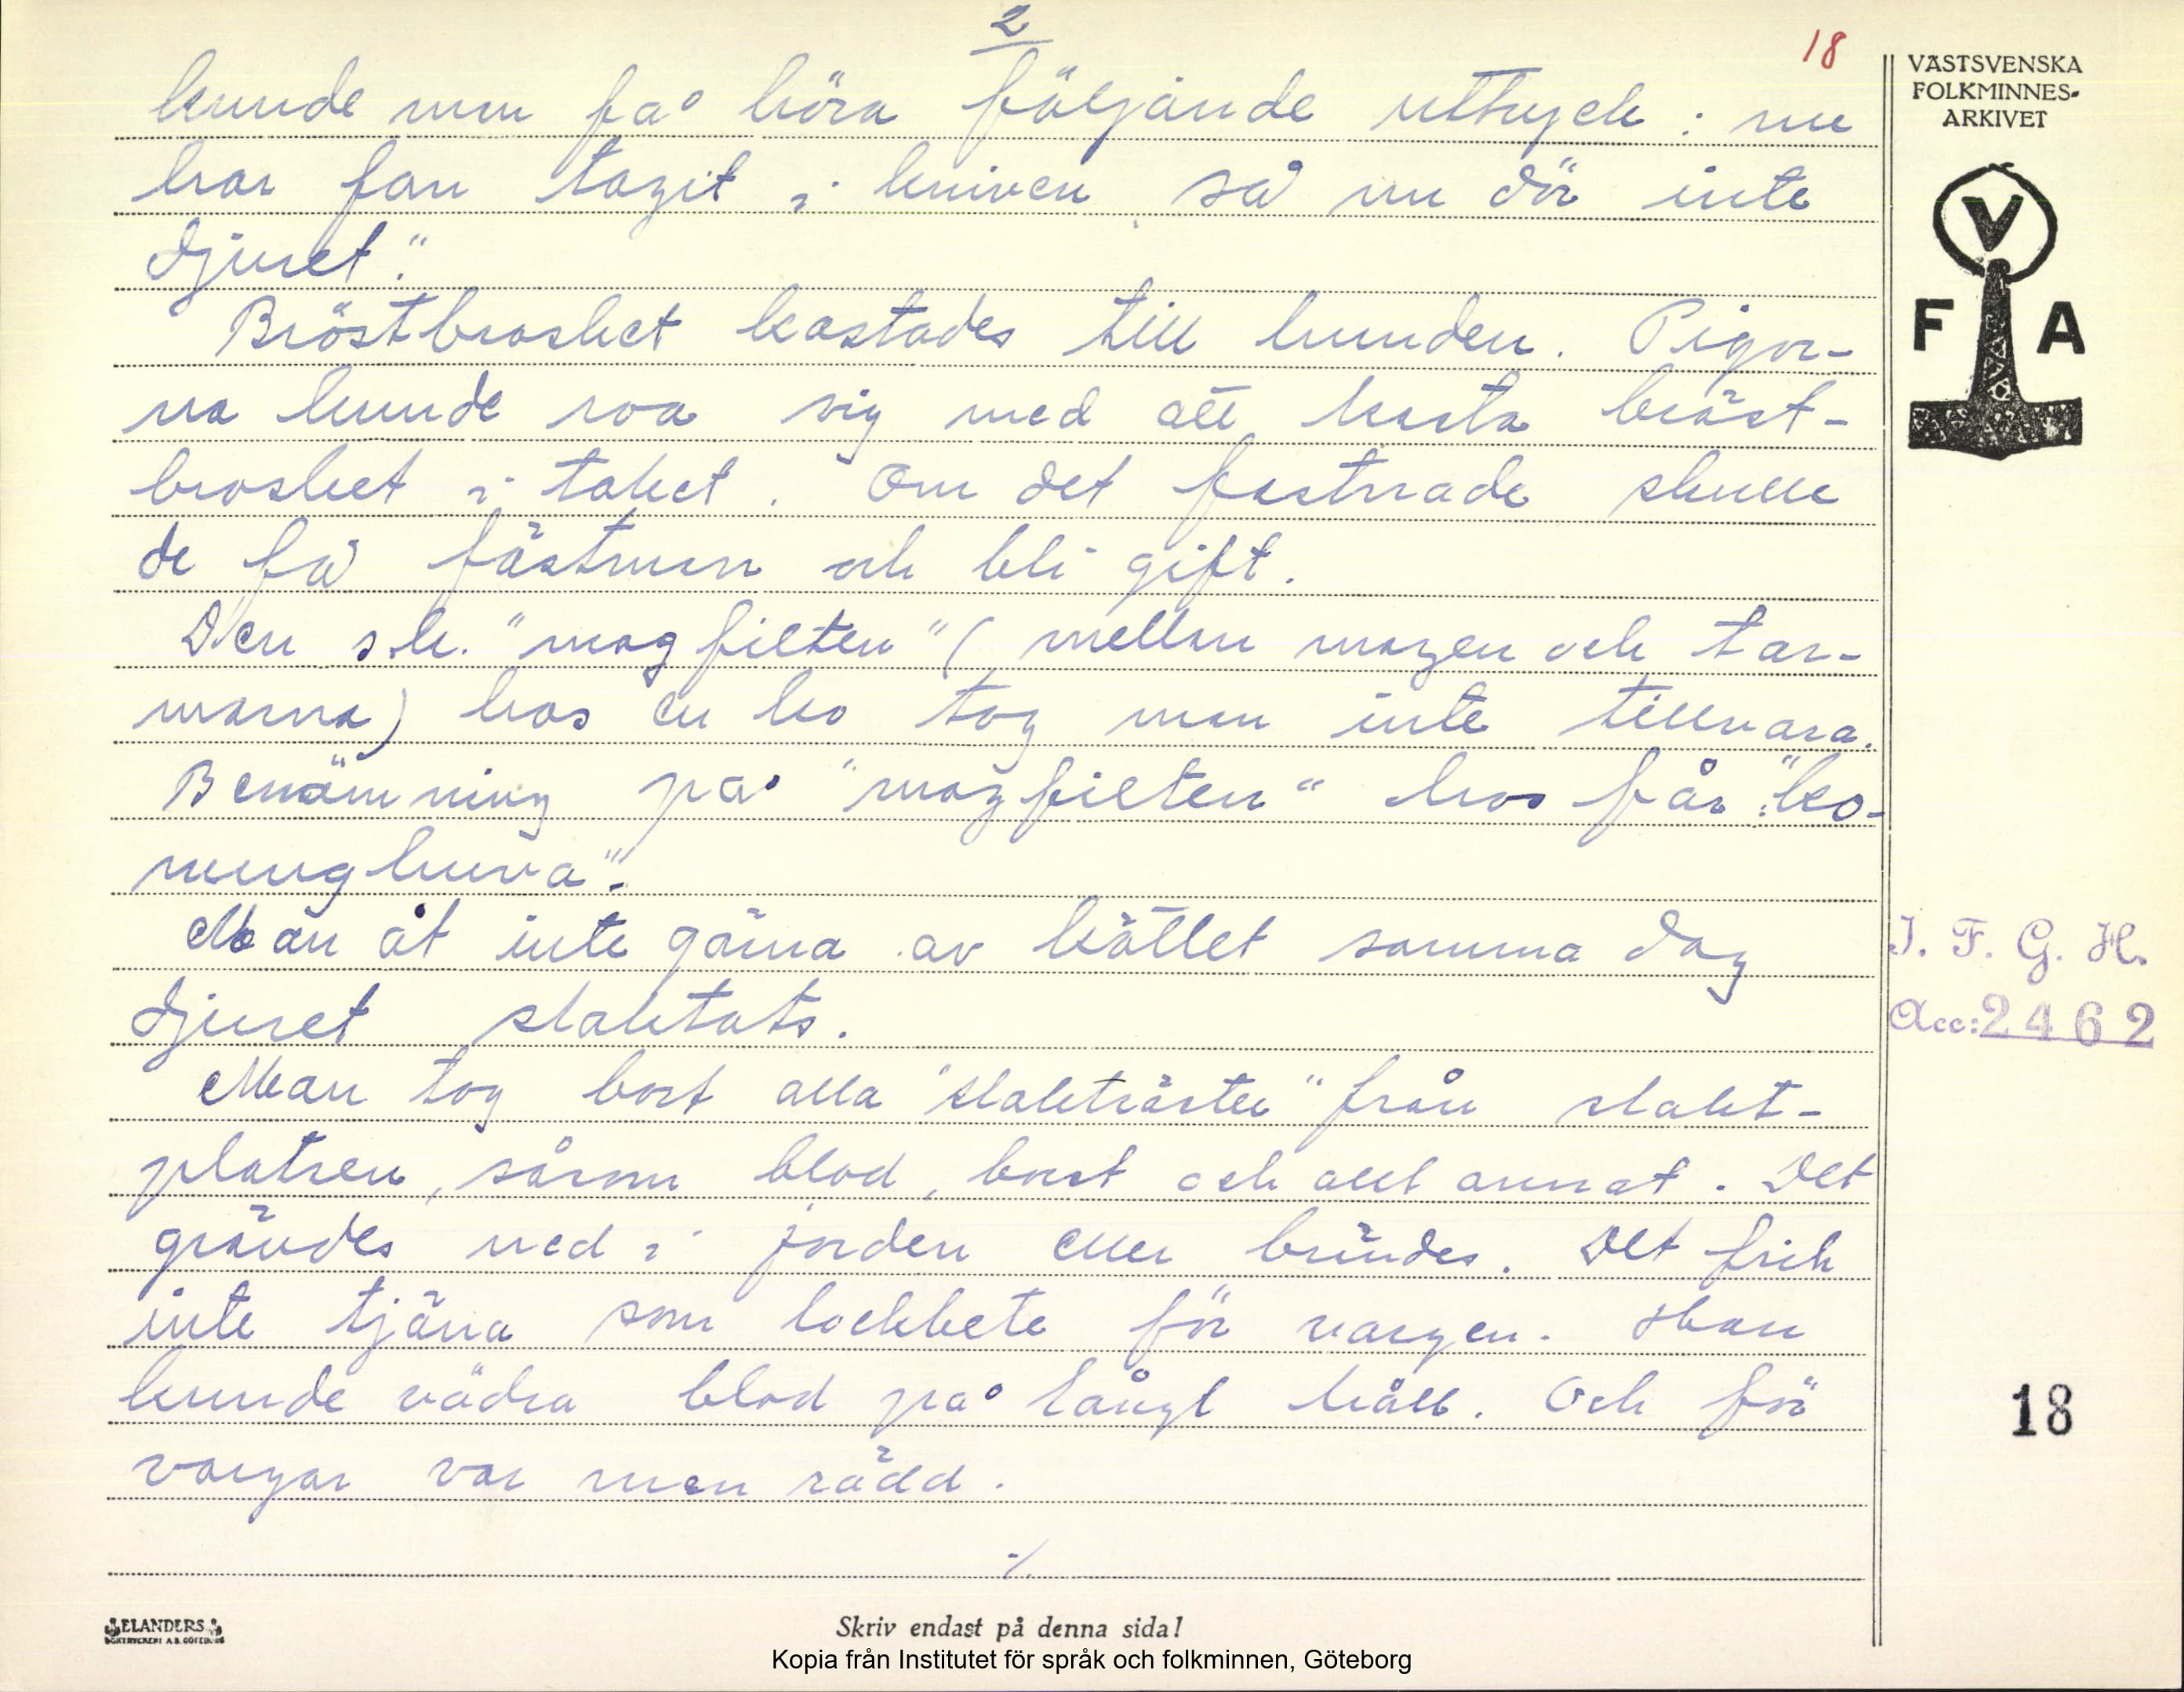 2
18
kunde man få höra följande uttryck: nu
har fan tagit i kniven så nu dör inte
djuret."
Bröstbrosket kastades till hunden. Pigor-
na kunde roa sig med att kasta bröst-
brosket i taket. Om det fastnade skulle
de få fästman och bli gift.
Den s.k. "magfilten" (mellan magen och tar-
marna) hos en ko tog man inte tillvara.
Benämning på "magfilten" hos får: "ko-
nunghuva".
Man åt inte gärna av köttet samma dag
djuret slaktats.
Man tog bort alla "slaktrester" från slakt-
platsen, såsom blod, borst och allt annat. Det
grävdes ned i jorden eller brändes. Det fick
inte tjäna som lockbete för vargen. Han
kunde vädra blod på långt håll. Och för
vargar var man rädd.
./.
VÄSTSVENSKA
FOLKMINNES-
ARKIVET
V
F A
I. F. G. H.
Acc: 2462
18
ELANDERS
BOKTRYCKERI A.B. GÖTEBORG
Skriv endast på denna sida!
Kopia från Institutet för språk och folkminnen, Göteborg